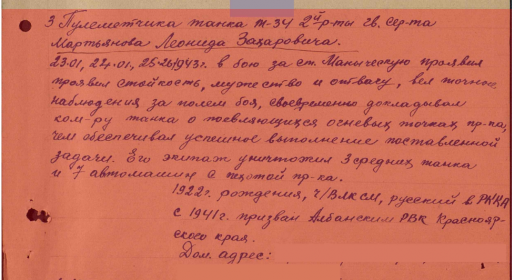 3. Пулеметчика танка Т-34 2й р-ты гв. сер-та
Мартьянова Леонида Захаровича.
23.01, 24.01, 25-26.1943г. в бою за ст. Манычскую проявил
проявил стойкость, мужество и отвагу, вел точные
наблюдения за полем боя, своевременно докладывал
ком-ру танка о появляющихся огневых точках пр-ка,
чем обеспечивал успешное выполнение поставленной
задачи. Его экипаж уничтожил 3 средних танка
и 7 автомашин с пехотой пр-ка.
1922г. рождения, ч/ВЛКСМ, русский в РККА
с 1941г. призван Абанским РВК Краснояр-
ского края.
Дом. адрес: